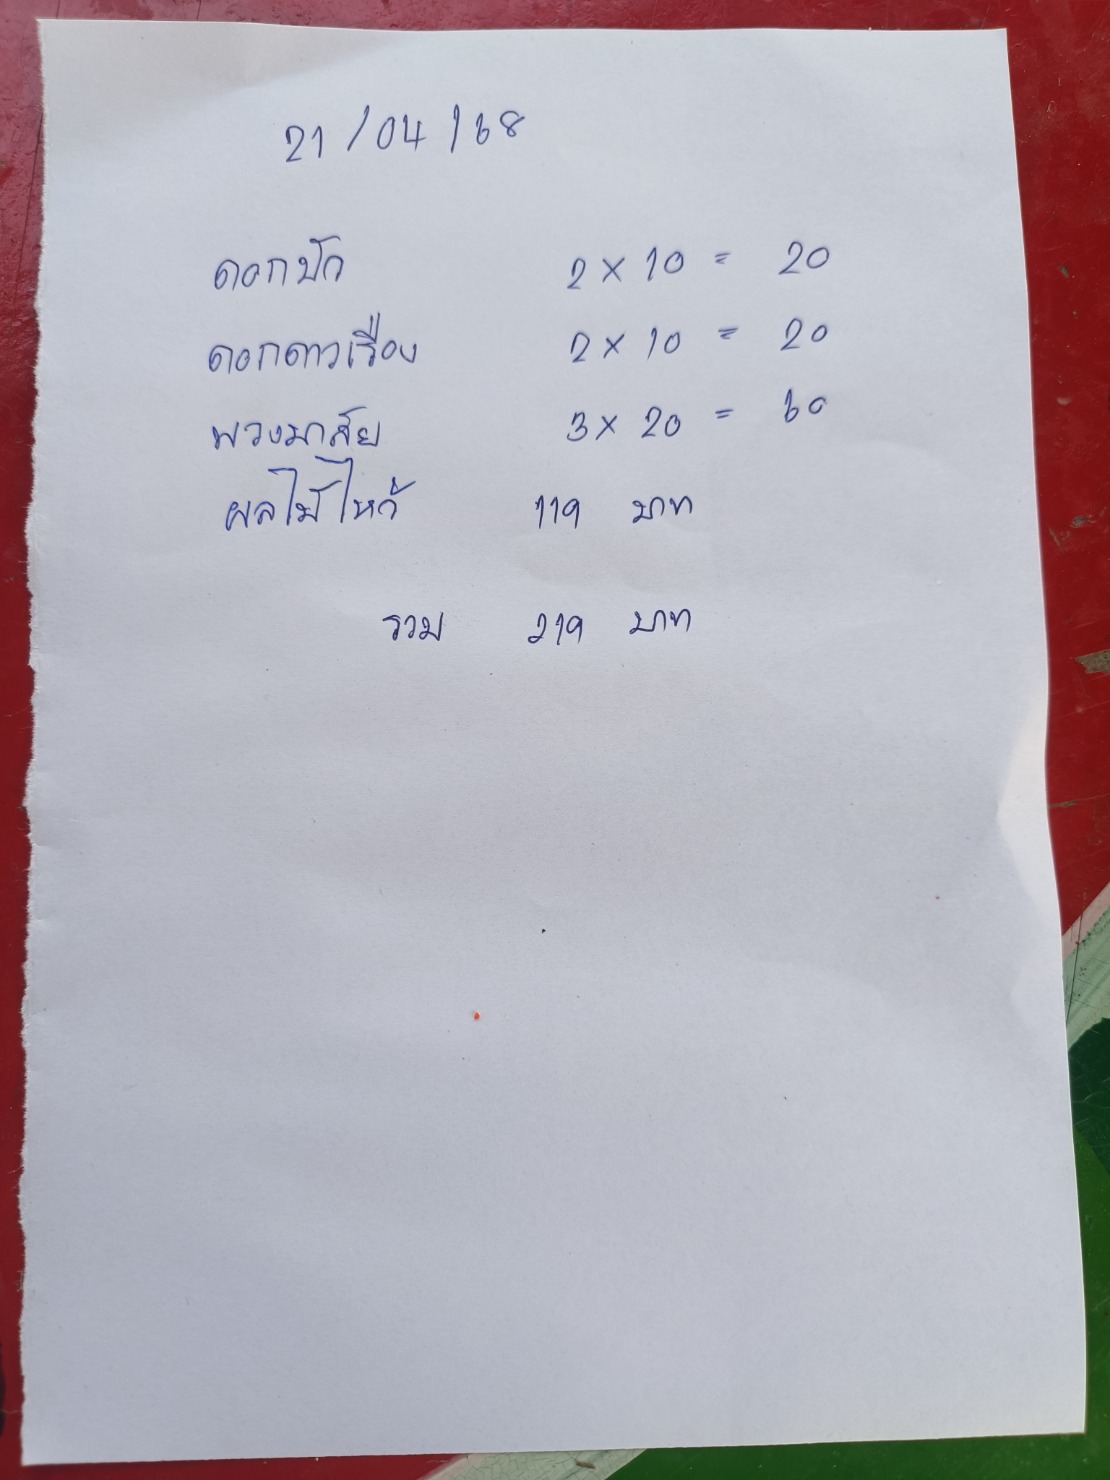 21/04/68
ดอกบัว 2 x 10 = 20
ดอกดาวเรือง 2 x 10 = 20
พวงมาลัย 3 x 20 = 60
ผลไม้ไหว้ 119 บาท
รวม 219 บาท